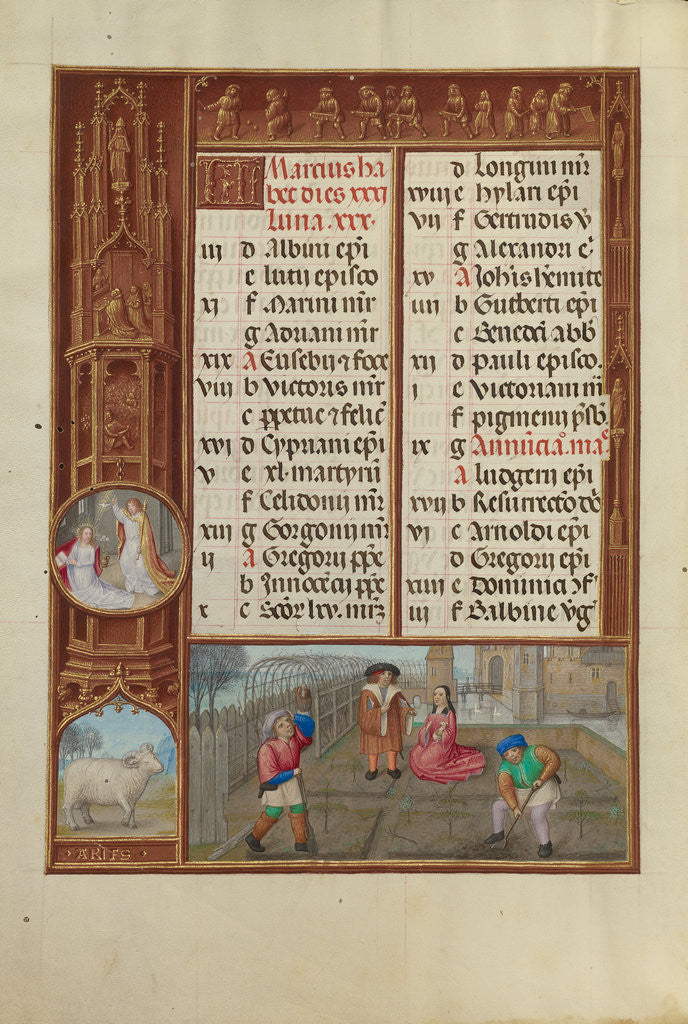 KL Marcius ha
bet dies xxxi
Luna .xxx.
iij d Albini ep̄i
e Lucij episco
xi f Marini mr̄
g Adriani mr̄
xix A Eusebij ⁊ foce
viij b Victoris mr̄
c ꝑpetue ⁊ felic̄
xvi d Cypriani ep̄i
v e xl. martyrū
f Celidonij mr̄
xiij g Gorgonij mr̄
ij A Gregorij pp̄e
b Innocēcij pp̄e
x c Scōr lxv. mr̄
d Longini mr̄
xviij e hylari ep̄i
vij f Gertrudis v̄
g Alexandri e᷒
xv A Joh̄is h̄emite
iiij b Gutberti ep̄i
c Benedc̄i abb̄
xij d pauli episco.
i e Victoriani m̄
f pigmenij p̄sb̄
ix g Annūcia᷒. ma᷒
A ludgerij ep̄i
xvij b Resurrectō dō
vi c Arnoldi ep̄i
d Gregorij ep̄i
xiiij e Dominici ꝯf᷒
iij f Balbine v̄g᷒
· ARIES ·